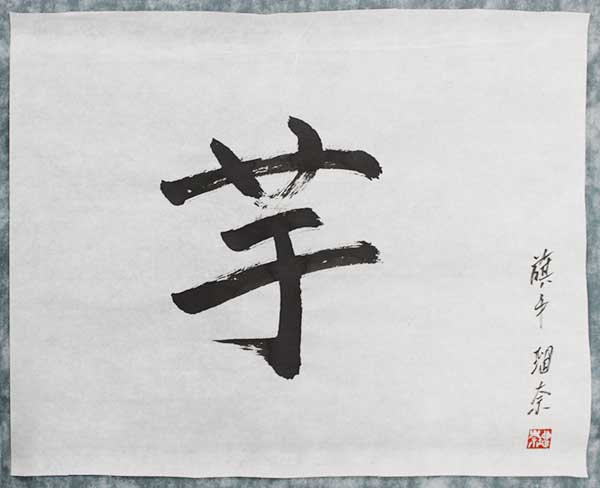 芋
旗手 瑠奈